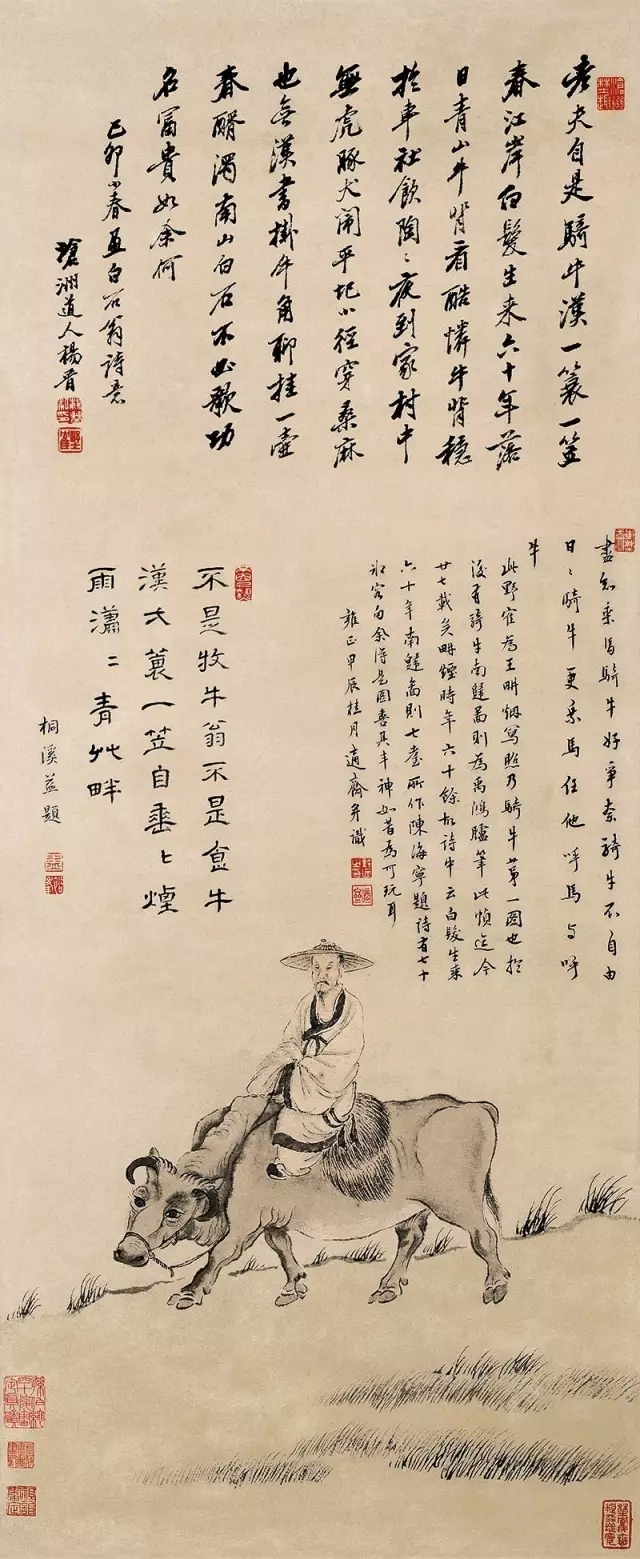 老夫自是騎牛漢一蓑一笠
春江岸白髮生来六十年落
日青山牛背看酷憐牛背穩
於車社飲陶〻夜到家村中
無虎豚犬閙平地小徑穿桑麻
也無漢書掛牛角聊挂一壺
春醑濁南山白石不必歌功
名富貴如余何
己卯小春画白石翁詩意
洲道人楊晉
盡知乘馬騎牛好爭奈騎牛不自由
日〻騎牛更乘馬任他呼馬与呼
牛
此野寉為王畊烟寫照乃騎牛第一圖也於
後有騎牛南歸啚則為禹鴻臚筆此幀迄今
廿七載矣畊煙時年六十餘故詩中云白髮生来
六十年南歸啚則七耋所作陳海寧題詩有七十
客句余得是圖喜其丰神如昔為可玩耳
雍正甲辰桂月適齋并識
不是牧牛翁不是食牛
漢大蓑一笠自垂〻煙
雨瀟〻青艸畔
桐溪益題